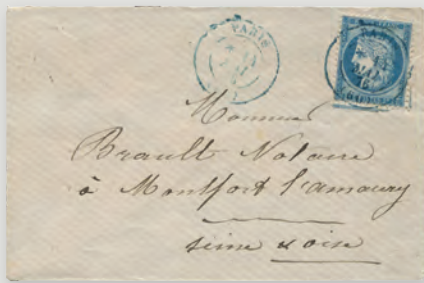 PARIS
PARIS
Monsieur
Brault Notaire
à Montfort l'amaury
seine & oise